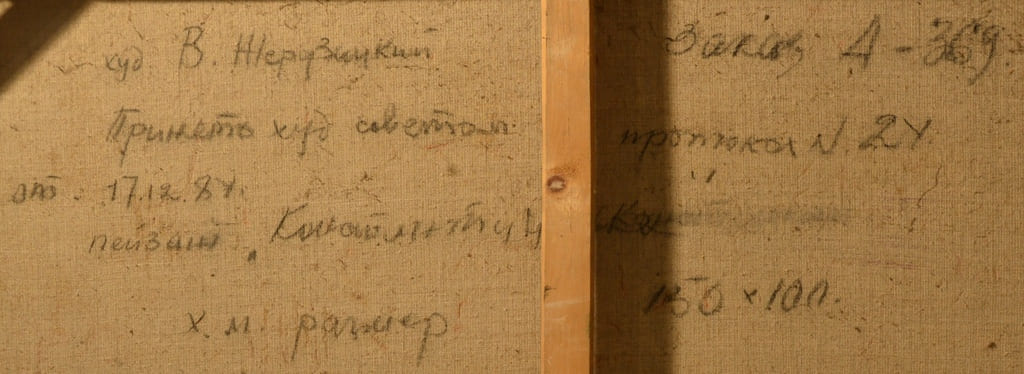 худ В. Жерузицкий Заказ Д-369.
Принято худ советом протокол N. 24.
от. 17.12.84.
пейзаж
х. м. размер 150 х 100.